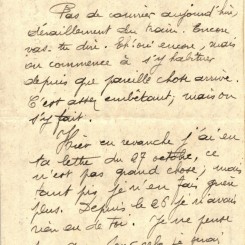 Pas de courrier aujourd'hui,
déraillement du train. Encore
vas-tu dire. Eh! oui encore, mais
on commence à s'y habituer
depuis que pareille chose arrive.
C'est assez embêtant, mais on
s'y fait.
Hier en revanche j'ai eu
ta lettre du 27 octobre, ce
n'est pas grand chose, mais
tant pis je n'en fais guère
plus. Depuis le 26 je n'avais
rien eu de toi. Je ne pense